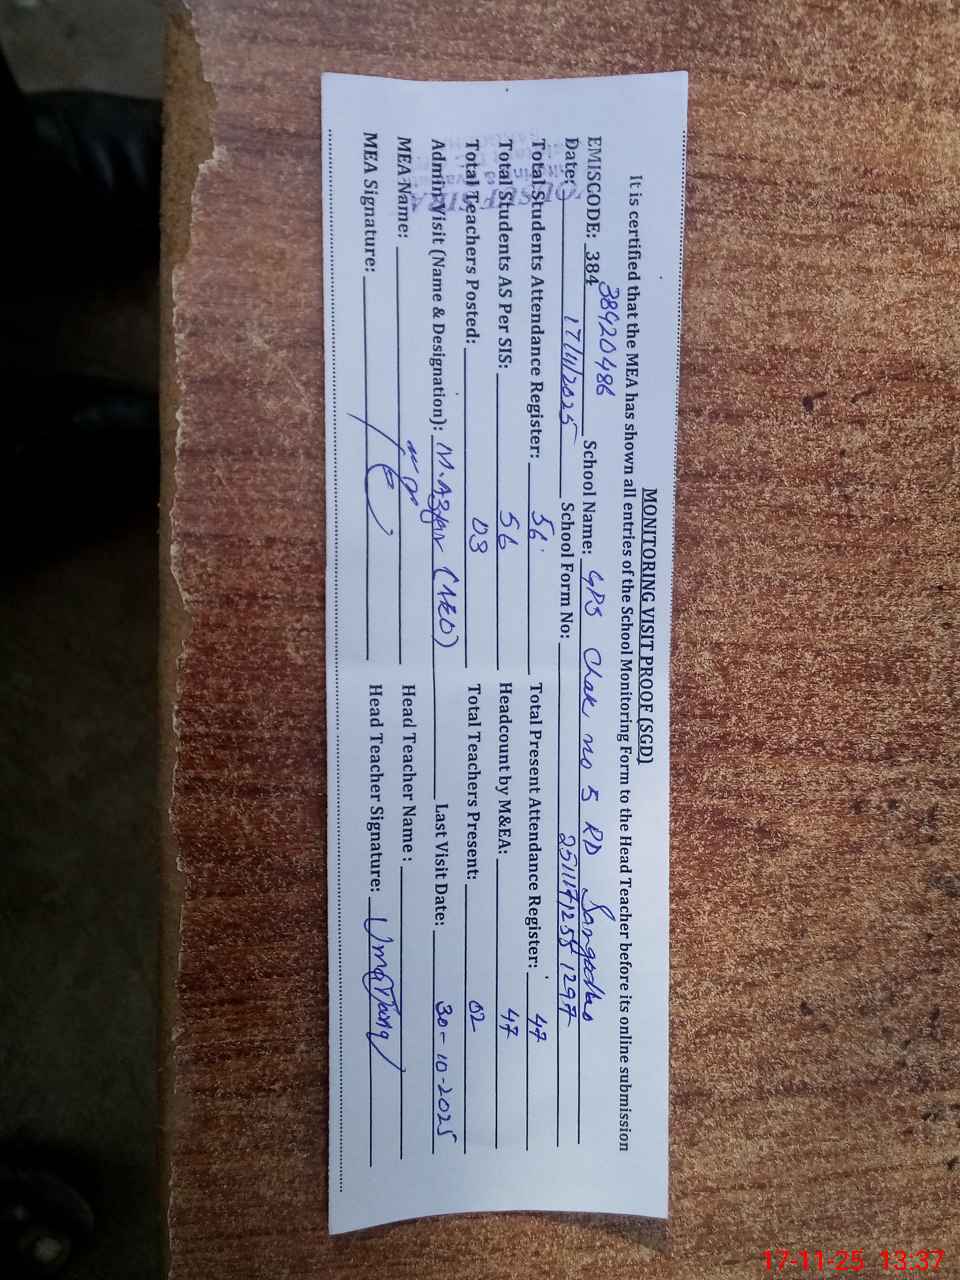 MONITORING VISIT PROOF (SGD)
It is certified that the MEA has shown all entries of the School Monitoring Form to the Head Teacher before its online submission
EMISCODE: 384 38420486 School Name: GPS Chak no 5 RD
Date: 17/11/2025 School Form No:
Total Students Attendance Register: 56 Total Present Attendance Register: 47
Total Students AS Per SIS: 56 Headcount by M&EA: 47
Total Teachers Posted: 03 Total Teachers Present: 02
Admin Visit (Name & Designation): (AEO) Last Visit Date: 30-10-2025
MEA Name: Head Teacher Name :
MEA Signature: Head Teacher Signature:
17-11-25 13:37